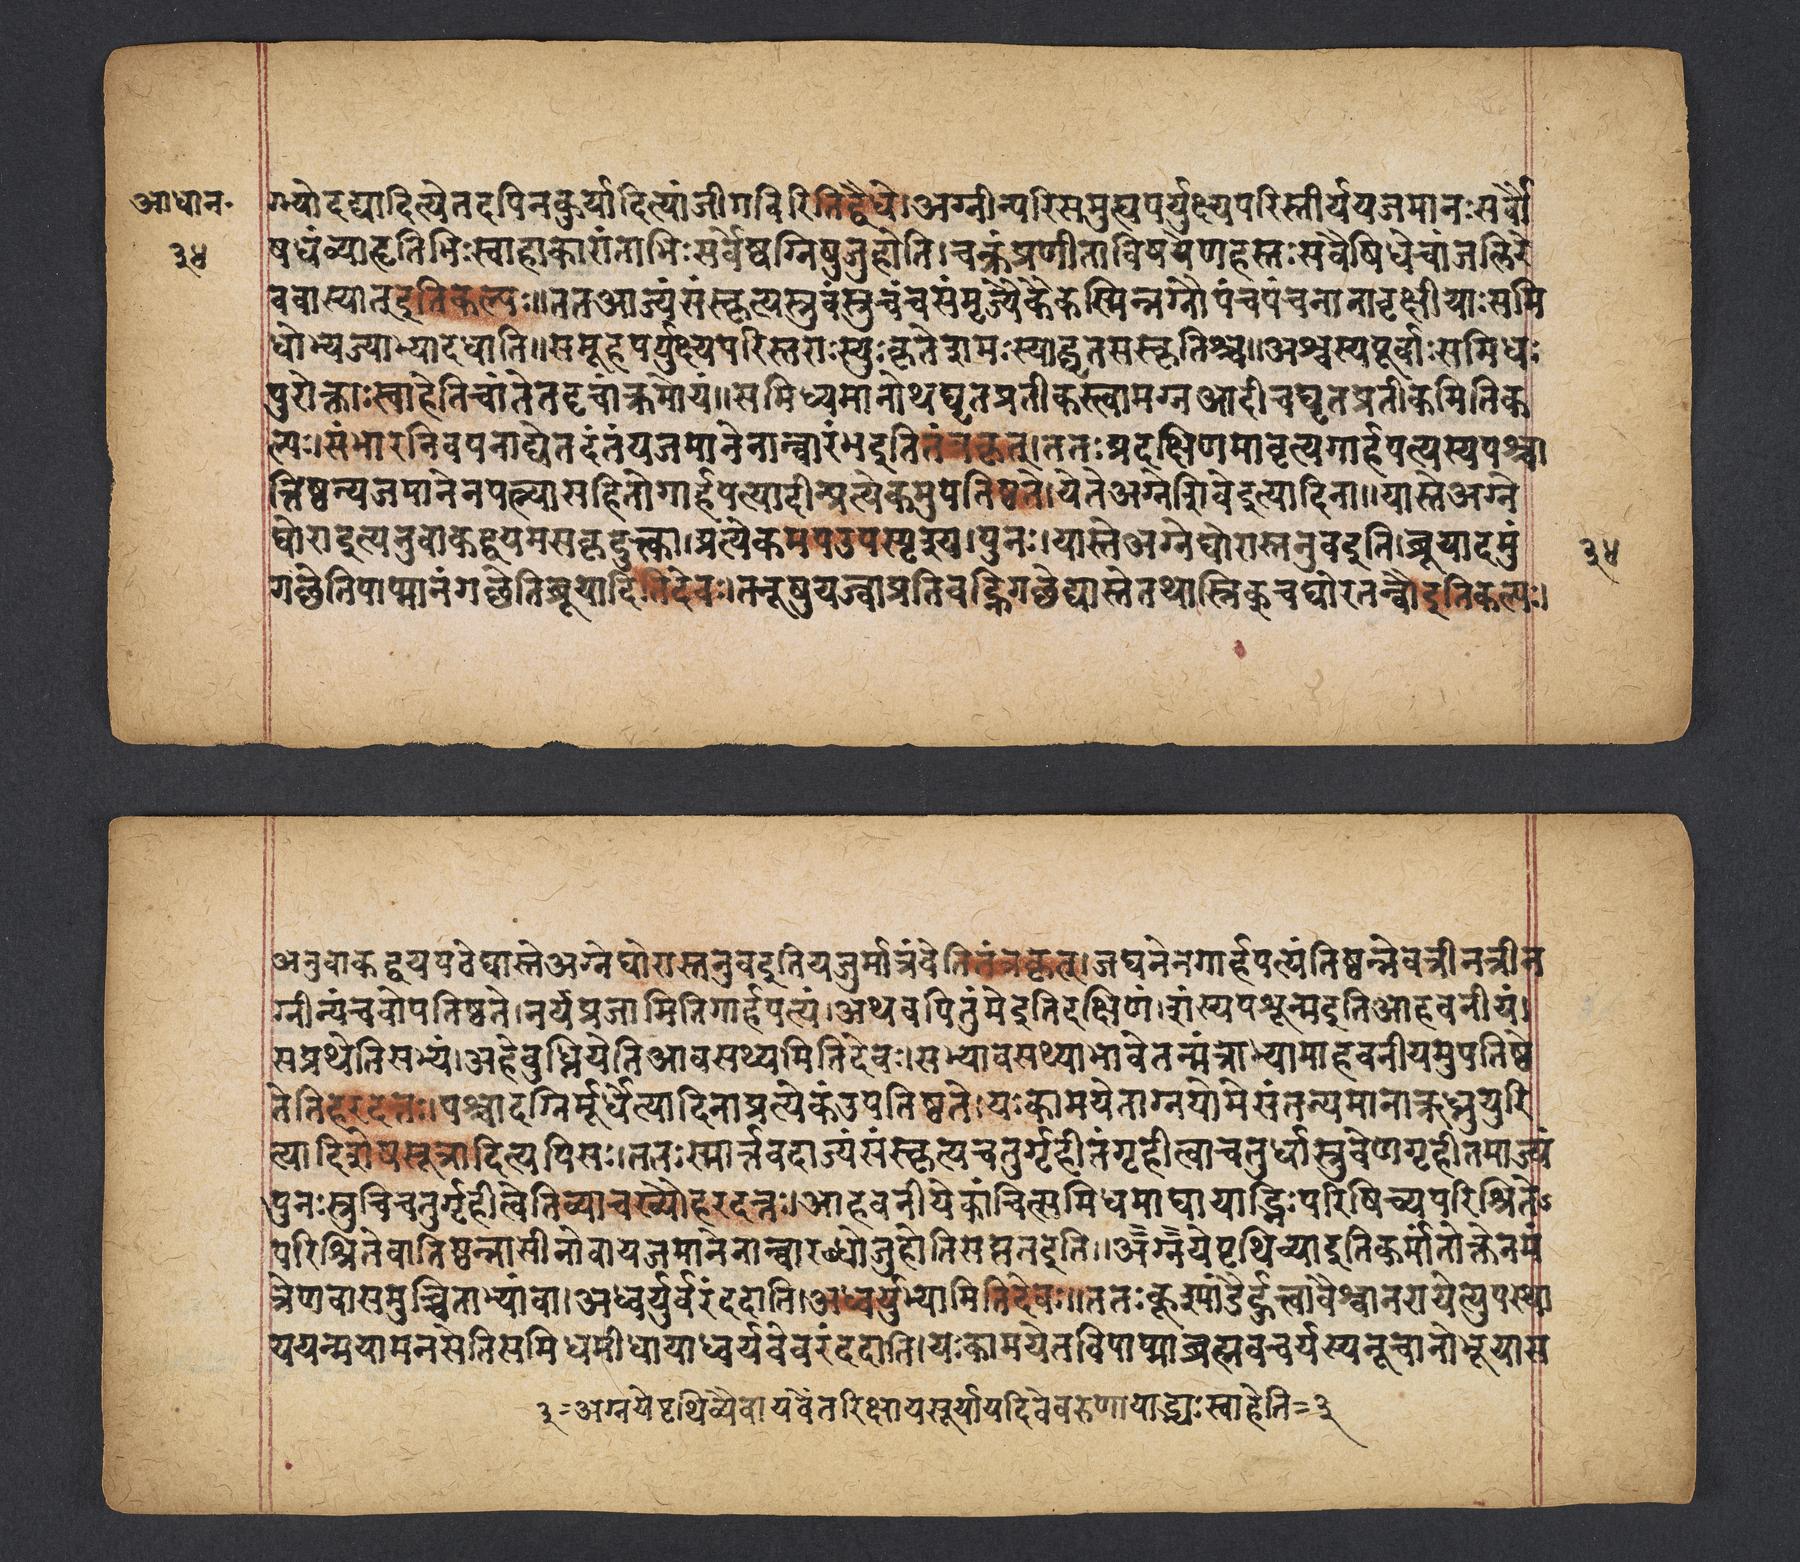 आधान॰
३४
ग्न्योदद्यादित्येतदपिनकुर्यादित्यांजीगविरितिद्वैधे।अग्नीन्परिसमुह्यपर्युक्ष्यपरिस्तीर्ययजमानःसर्वौ
षधंव्याहृतिभिःस्वाहाकारांताभिःसर्वेष्वग्निषुजुहोति।
ववास्यातइतिकल्पः॥ततआज्यंसंस्कृत्यस्रुवंस्रुचंचसंमृज्यैकैकस्मिन्नग्नौपंचपंचनानावृक्षीयाःसमि
धोभ्यज्याभ्यादधाति॥समूहपर्युक्ष्यपरिस्तराःस्युः अश्वस्यपूर्वाःसमिधः
पुरोक्ताःस्वाहेतिचांते समिध्यमानोथघृतप्रतीकस्त्वामग्नआदीचघृतप्रतीकमितिक
ल्पः।संभारनिवपनाद्येतदंतंयजमानेनान्वारंभइतितंत्रकृत्।ततःप्रदक्षिणमावृत्यगार्हपत्यस्यपश्चा
त्तिष्ठन्यजमानेनपत्न्यासहितोगार्हपत्यादीन्प्रत्येकमुपतिष्ठते।येतेअग्नेशिवेइत्यादिना॥यास्तेअग्ने
घोराइत्यनुवाकद्वयमसकृदुक्त्वा।प्रत्येकमपउपस्पृश्य।पुनः।यास्तेअग्नेघोरास्तनुवइति।ब्रूयादमुं
३४
गछेतिपाप्मानंगछेतिब्रूयादितिदेवः।तनूषुयज्वाप्रतिवह्निगछेद्यास्तेतथास्निक्कुचघोरतन्वौइतिकल्पः।
अनुवाकद्वयपवेद्यास्तेअग्नेघोरास्तनुवइतियजुर्मात्रंवेतितंत्रकृत्।जघनेनगार्हपत्यंतिष्ठन्नेवत्रीनत्रीन
ग्नीन्पंचवोपतिष्ठते।नर्यप्रजामितिगार्हपत्यं।अथवपितुंमेइतिदक्षिणं।शंस्यपशून्मइतिआहवनीयं।
सप्रथेतिसभ्यं।अहेबुध्नियेतिआवसथ्यमितिदेवः।सभ्यावसथ्याभावेतन्मंत्राभ्यामाहवनीयमुपतिष्ठे
तेतिहरदत्तः।पश्चादग्निर्मूर्धेत्यादिनाप्रत्येकंउपतिष्ठते।यःकामयेताग्नयोमेसंतन्यमानाऋध्नुयुरि
त्यादिशेषसूत्रादित्यपिसः।ततःस्मार्त्तवदाज्यंसंस्कृत्यचतुर्गृहीतंगृहीत्वाचतुर्धास्रुवेणगृहीतमाज्यं
पुनःस्रुचिचतुर्गृहीत्वेतिव्याचख्यौहरदत्तः।आहवनीयेकांचित्समिधमाधायाद्भिःपरिषिच्यपरिश्रितेऽ
परिश्रितेवातिष्ठन्नासीनोवायजमानेनान्वारब्धोजुहोतिसप्ततइति॥अग्नयेपृथिव्याइतिकर्मांतोक्तेनमं
त्रेणवासमुच्चिताभ्यांवा।अध्वर्युर्वरंददाति।अध्वर्युभ्यामितिदेवः॥ततःकूश्मांडैर्हुत्वावैश्वानरायेत्युपस्था
ययन्मयामनसेतिसमिधमाधायाध्वर्यवेवरंददाति।यःकामयेतविपाप्माब्रह्मवचर्यस्यनूचानोभूयास
३=अग्नयेपृथिव्यैवायवेंतरिक्षायसूर्यायदिवेवरुणायाद्भ्यःस्वाहेति=३